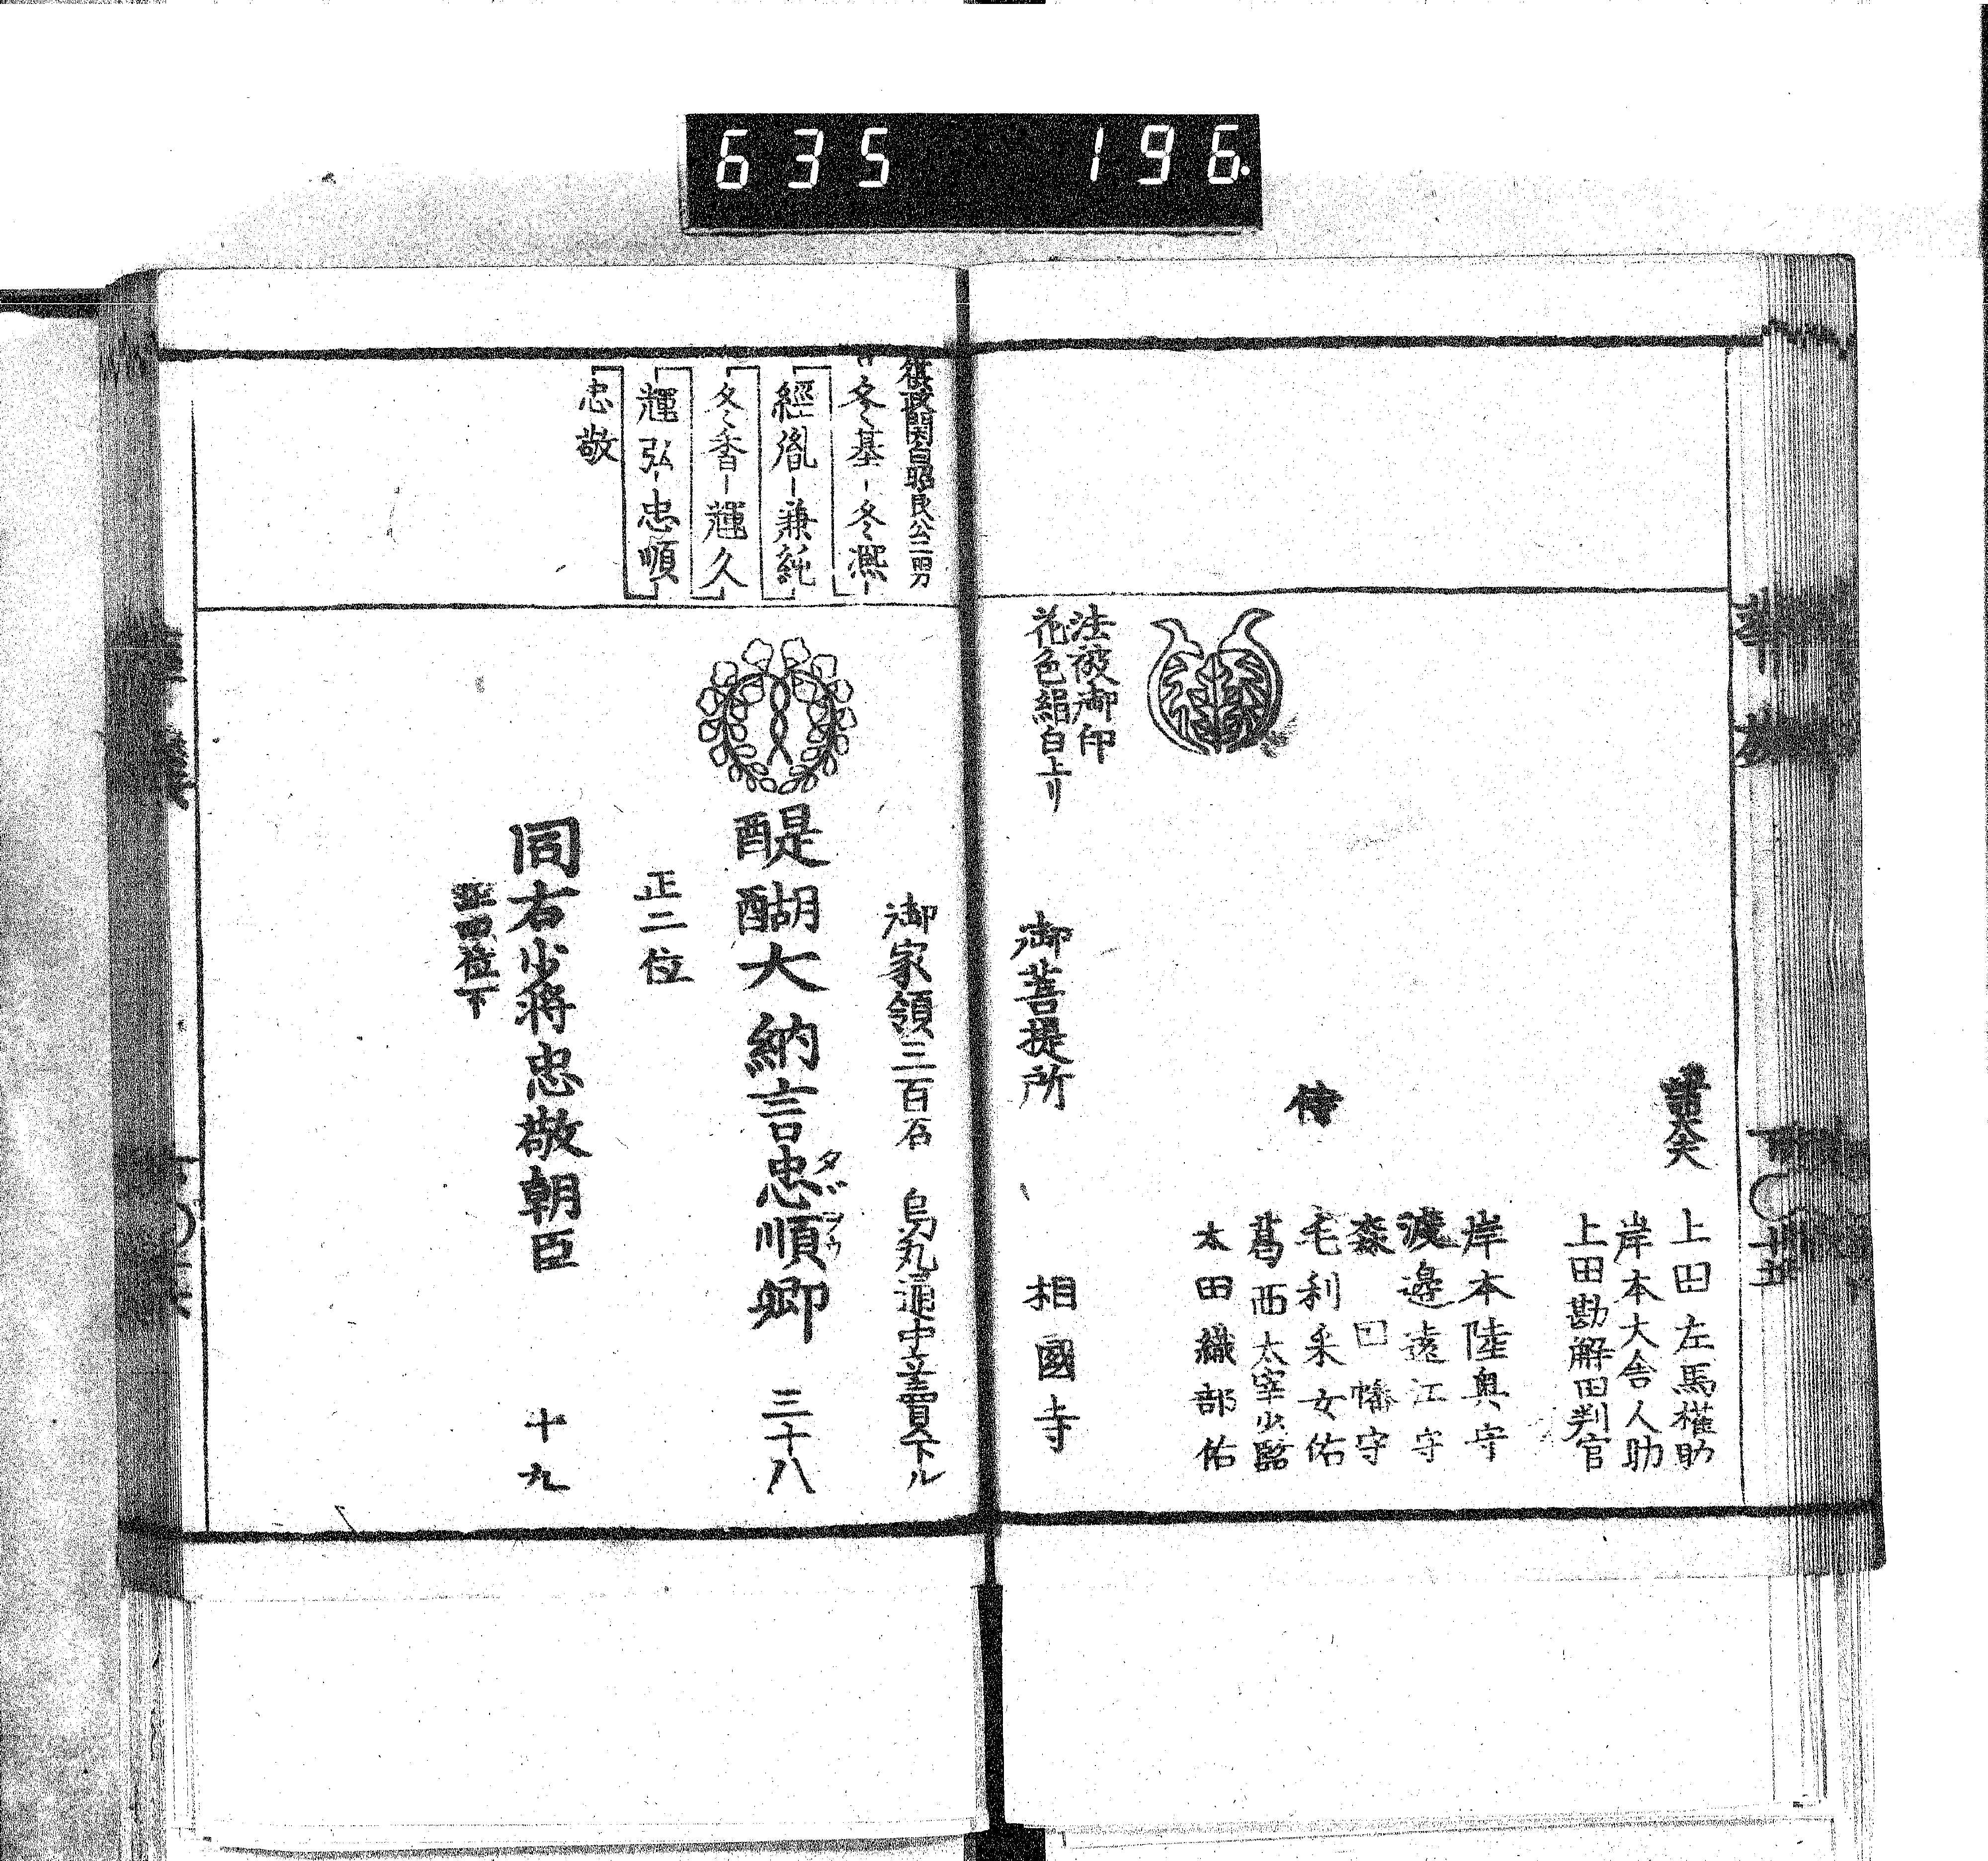 635 196
諸大夫
上田左馬權助
岸本大舎人助
上田勘解由判官
侍
岸本陸奥守
渡邊遠江守
森因幡守
毛利采女佑
葛西太宰少監
太田織部佑
法被御印
花色絹白上リ
御菩提所 相國寺
復政関白昭良公二男
冬基-冬熈
經胤-兼純
冬香-輝久
輝弘-忠順
忠敬
御家領三百石 烏丸通中立賣下ル
醍醐大納言忠順卿 三十八
正二位
同右少将忠敬朝臣 十九
正四位下